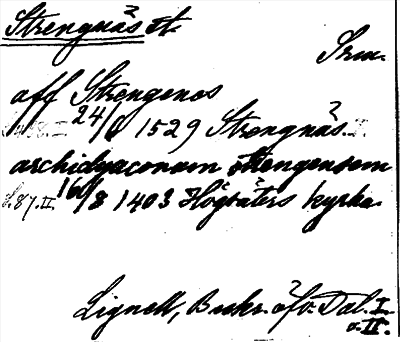 Strengnäs st.
Srm.
aff Strengenos
24/6 1529 Strengnäs I.
archidyaconum strengensem
s. 87. II. 16/8 1403 Högsäters kyrka.
Lignell, Beskr. öfv. Dal. I.
o. II.